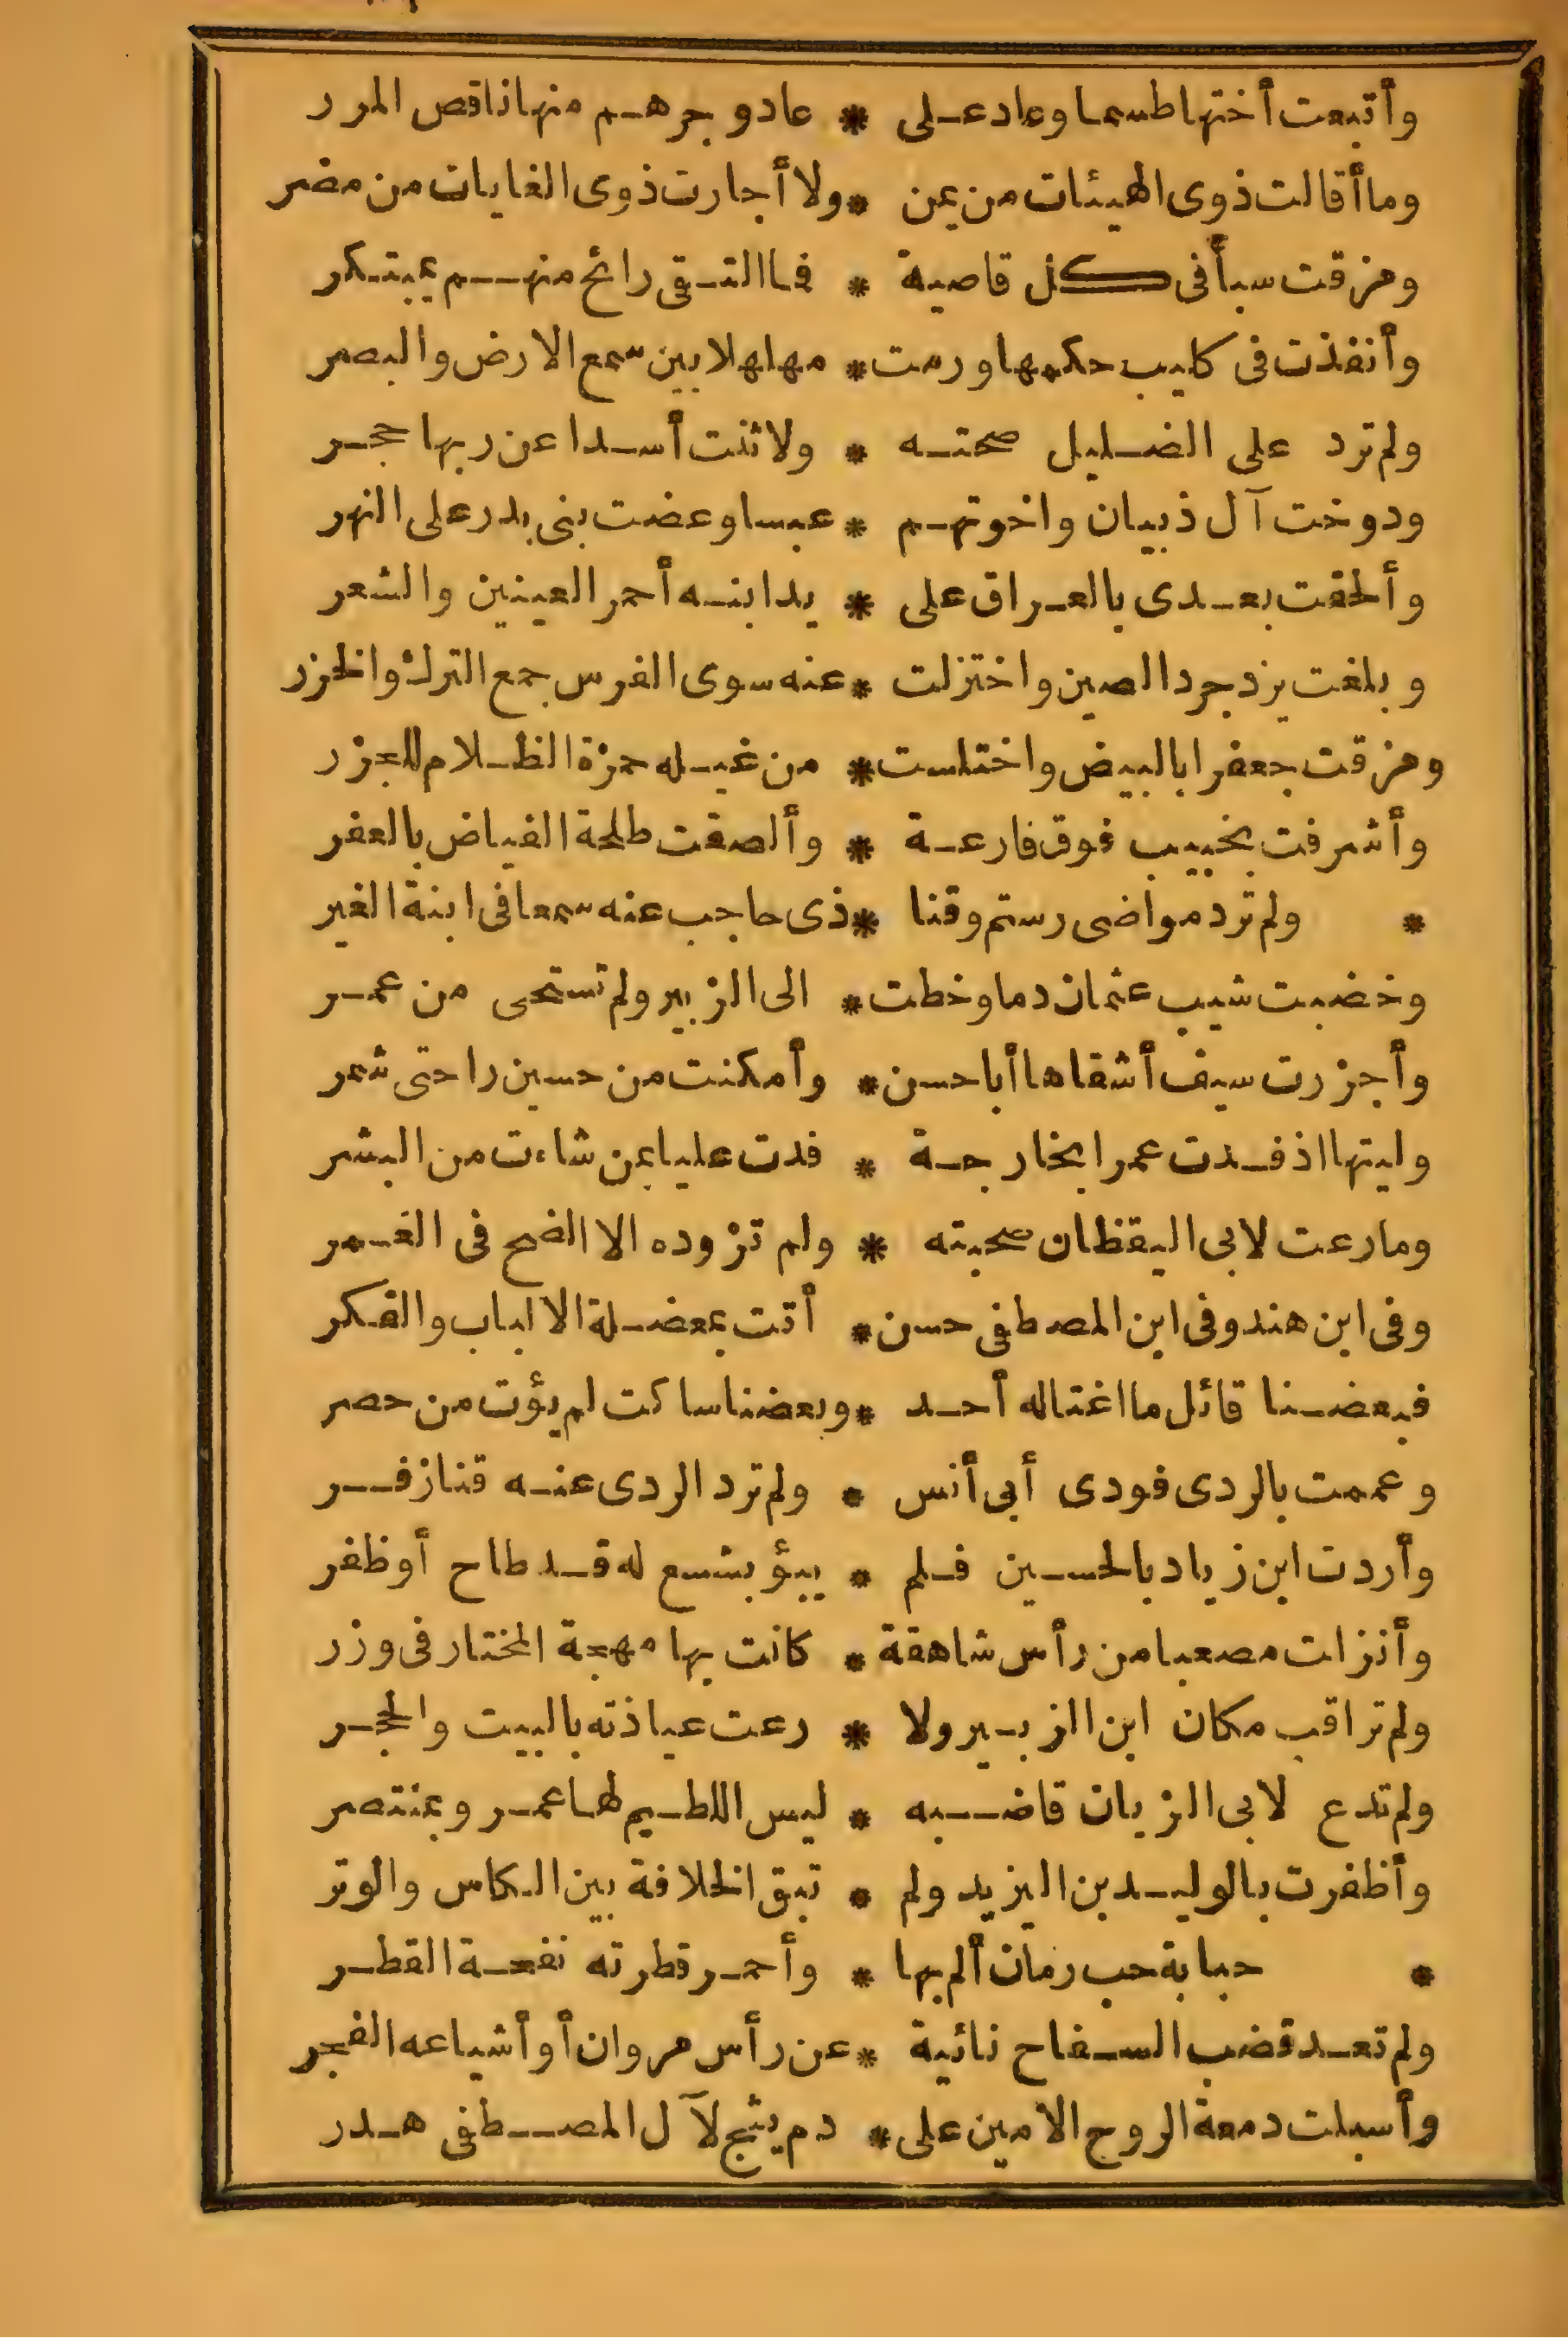 وأتبعت أختها طسما وعاد على * عاد وجرهم منها ناقص المرر
وما أقالت ذوى الهيئات من يمن * ولا أجارت ذوى الغايات من مضر
ومزقت سبأ فى كل قاصية * فما التقى رائح منهم بمبتكر
وأنفذت فى كليب حكمها ورمت * مهلهلا بين سمع الارض والبصر
ولم ترد على الضليل صحته * ولا ثنت أسدا عن ربها حجر
ودوخت آل ذبيان واخوتهم * عبسا وعضت بنى بدر على النهر
وألحقت بعدى بالعراق على * يدا بنه أحمر العينين والشعر
وبلغت يزدجرد الصين واختزلت * عنه سوى الفرس جمع الترك والخزر
ومزقت جعفرا بالبيض واختلست * من غيله حمزة الظلام للجزر
وأشرفت بخبيب فوق فارعة * وألصقت طلحة الفياض بالعفر
* ولم ترد مواضى رستم وقنا * ذى حاجب عنه سمعا فى ابنة الغير
وخضبت شيب عثمان دما وخطت * الى الزبير ولم تستحى من عمر
وأجزرت سيف أشقاها أبا حسن * وأمكنت من حسين راحتى شمر
وليتها اذ فدت عمرا بخارجة * فدت عليا بمن شاءت من البشر
وما رعت لابى اليقظان صحبته * ولم تزوده الا الضح فى الغمر
وفى ابن هند وفى ابن المصطفى حسن * أتت بمعضلة الالباب والفكر
فبعضنا قائل ما اغتاله أحد * وبعضنا ساكت لم يؤت من حصر
وعممت بالردى فودى أبى أنس * ولم ترد الردى عنه قنا زفر
وأردت ابن زياد بالحسين فلم * يبؤ بشسع له قد طاح أو ظفر
وأنزلت مصعبا من رأس شاهقة * كانت بها مهجة المختار فى وزر
ولم تراقب مكان ابن الزبير ولا * رعت عياذته بالبيت والحجر
ولم تدع لابى الزبان قاضبه * ليس اللطيم لها عمر وبمنتصر
وأظفرت بالوليد بن اليزيد ولم * تبق الخلافة بين الكاس والوتر
* حبابة حب رمان ألم بها * وأحمر قطرته نفحة القطر
ولم تعد قضب السفاح نائية * عن رأس مروان أو أشياعه الفجر
وأسبلت دمعة الروح الامين على * دم يثج لآل المصطفى هدر